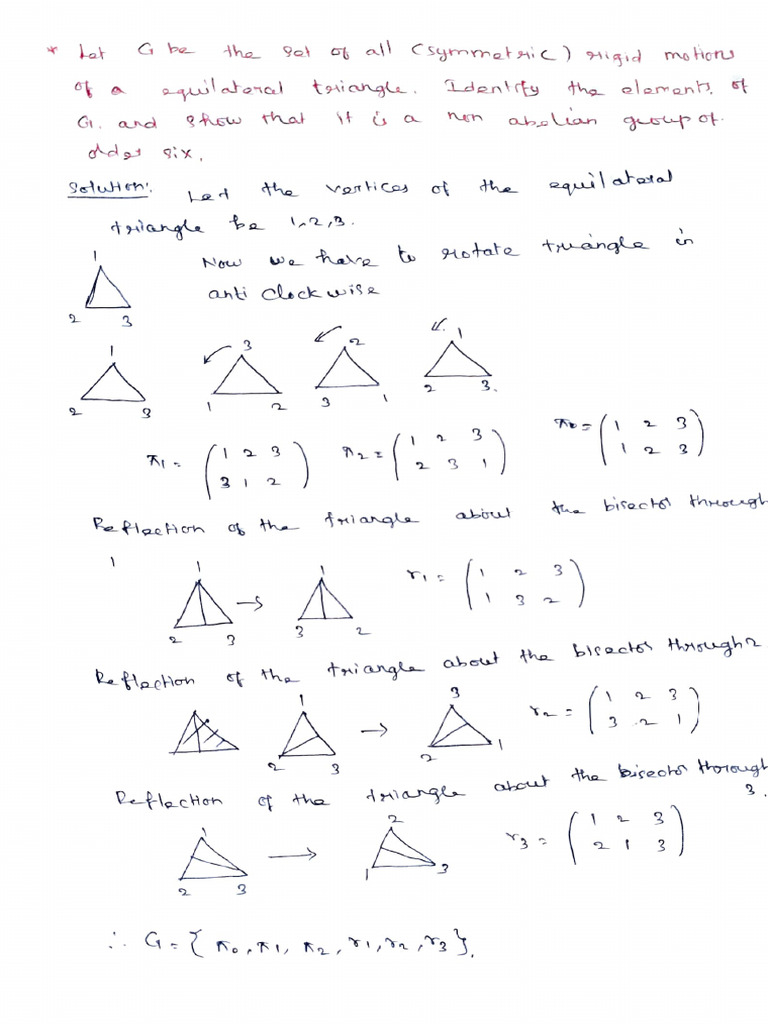 * Let G be the set of all (symmetric) rigid motions
of a equilateral triangle. Identify the elements of
G. and show that it is a non abelian group of.
order six.
Solution: Let the vertices of the equilateral
triangle be 1,2,3.
1
2 3
Now we have to rotate triangle in
anti clockwise
1 3 2 1
2 3 1 2 3 1 2 3.
π₁ = (1 2 3 / 3 1 2) π₂ = (1 2 3 / 2 3 1) π₀ = (1 2 3 / 1 2 3)
Reflection of the triangle about the bisector through
1
1 1
2 3 → 3 2
r₁ = (1 2 3 / 1 3 2)
Reflection of the triangle about the bisector through 2
1 3
2 3 → 2 1
r₂ = (1 2 3 / 3 2 1)
Reflection of the triangle about the bisector thorough
3.
1 2
2 3 → 1 3
r₃ = (1 2 3 / 2 1 3)
∴ G = { π₀, π₁, π₂, r₁, r₂, r₃ }.